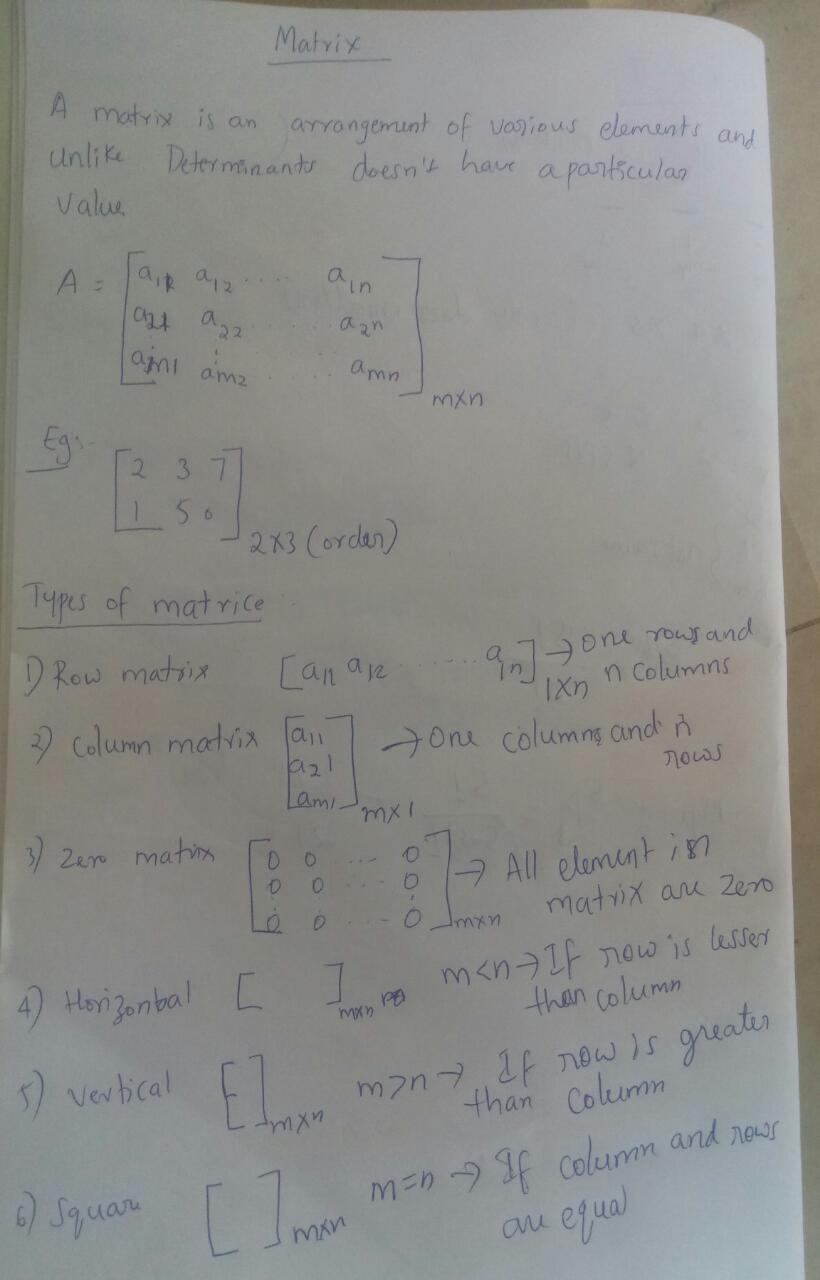 Matrix
A matrix is an arrangement of various elements and
unlike Determinants doesn't have a particular
value
A = [a11 a12 ..... a1n
a21 a22 ..... a2n
am1 am2 ..... amn] m×n
Eg:-
[2 3 7
1 5 0] 2×3 (order)
Types of matrice
1) Row matrix [a11 a12 ...... a1n] 1×n → one rows and
n columns
2) Column matrix [a11 a21 am1] m×1 → One columns and n
rows
3) Zero matrix [0 0 ... 0
0 0 ... 0
0 0 ... 0] m×n → All element in
matrix are zero
4) Horizontal [ ] m×n m<n → If row is lesser
than column
5) Vertical [ ] m×n m>n → If row is greater
than column
6) Square [ ] m×n m=n → If column and rows
are equal